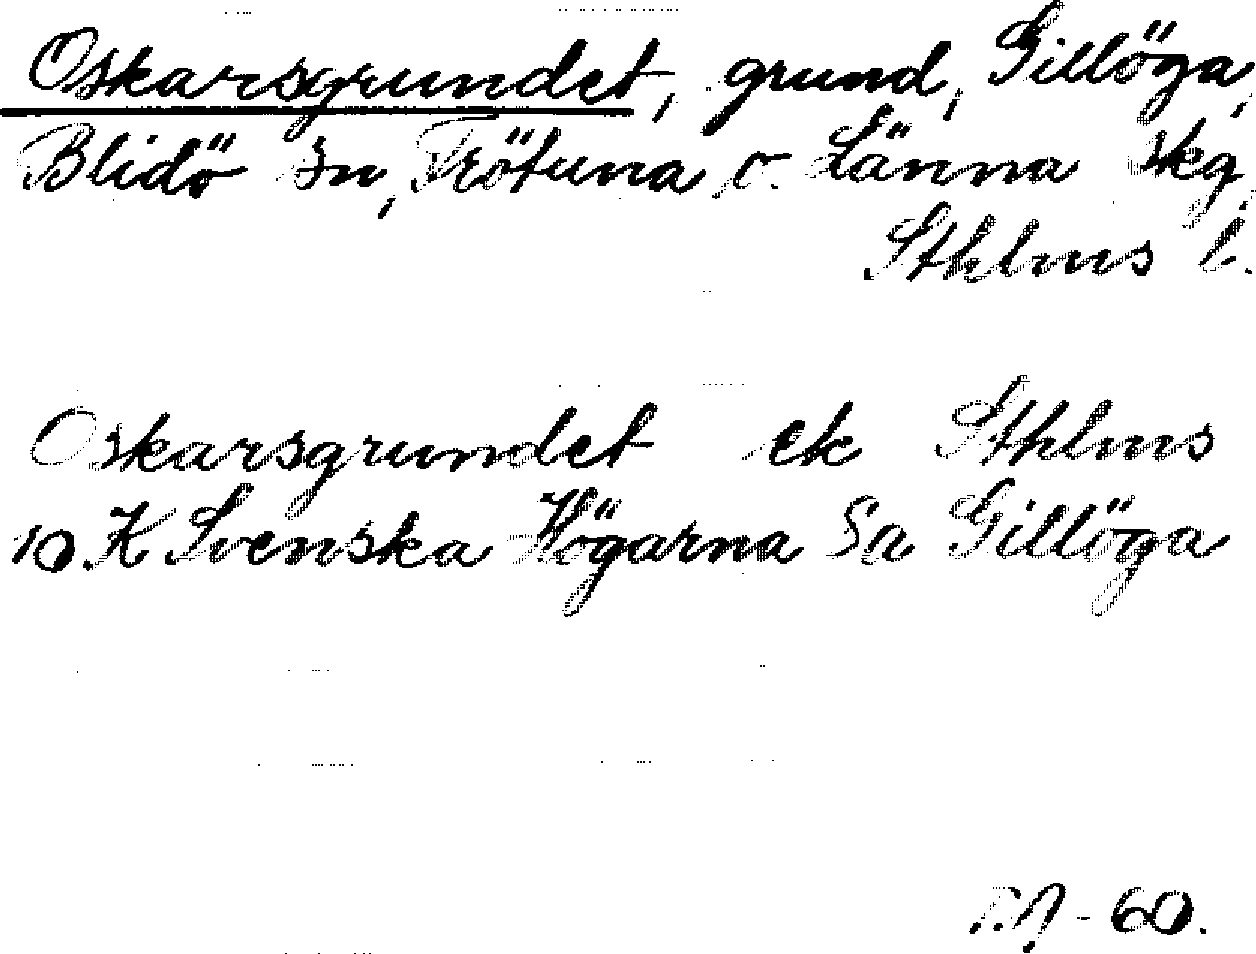 Oskarsgrundet, grund, Gillöga,
Blidö sn, Frötuna o. Länna skg,
Sthlms l.
Oskarsgrundet ek Sthlms
10. K Svenska Högarna Sa Gillöga
-60.